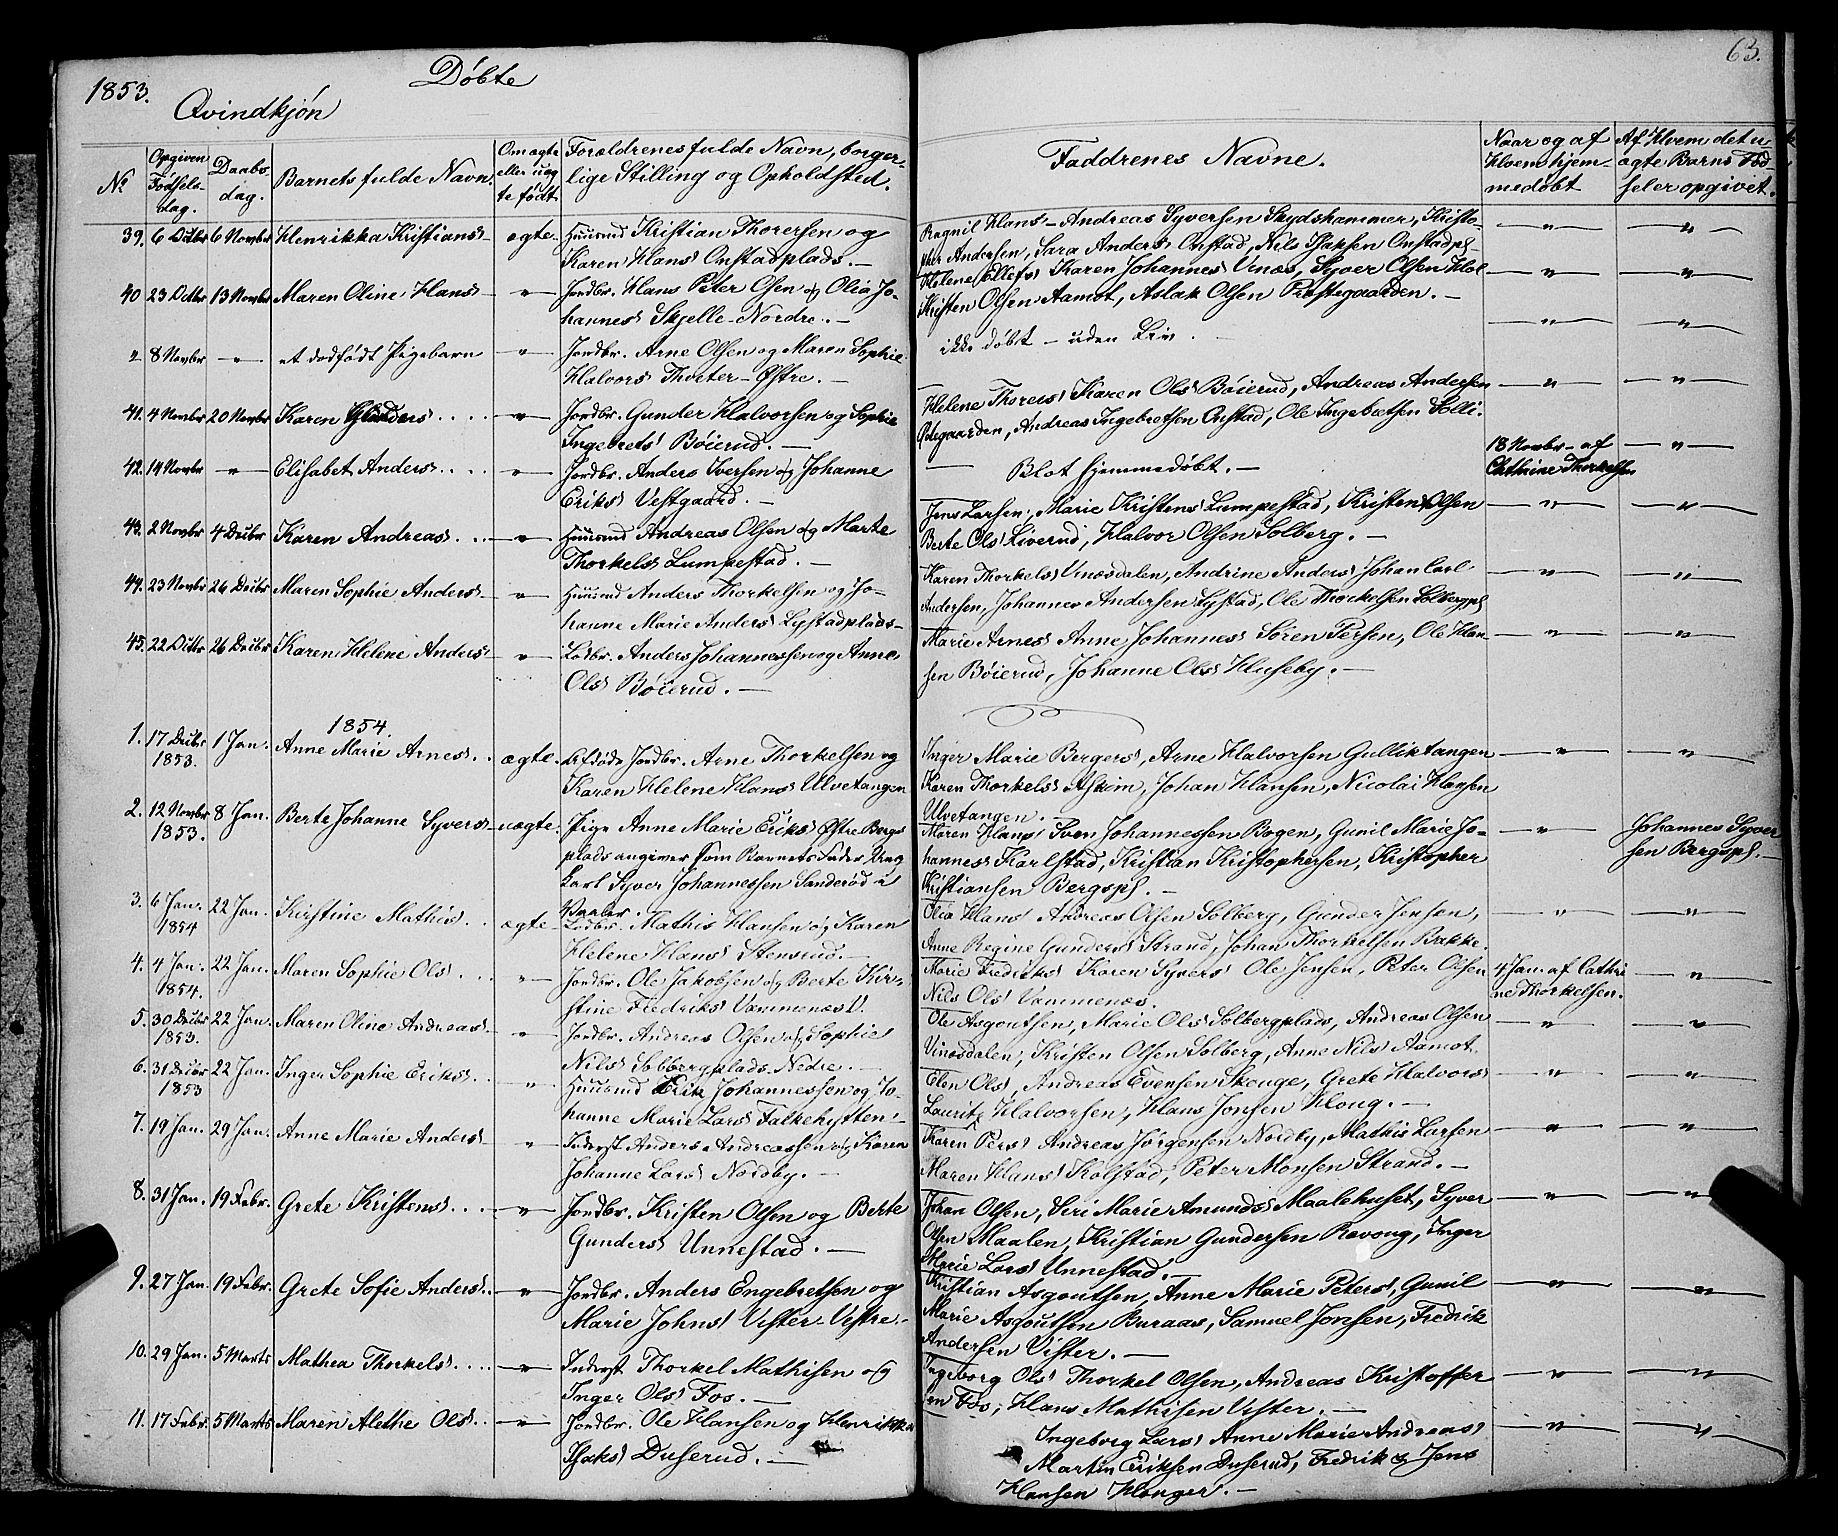 1853.
Döbte
63.
Qvindkjön
No
Opgiven Födsels-dag.
Daabs dag.
Barnets fulde Navn.
Om ægte eller uæg te födt
Forældrenes fulde Navn, borger-
lige Stilling og Opholdsted.
Faddrenes Navne.
Naar og af Hvem hjem-medöbt
Af Hvem det u ægte Barns Fad-
er opgivet.
39. 6 Octbr 6 Novbr Henrikka Kristians ægte. Huusmd Kristian Thorersen og
Karen Hans Onstadplads.
Ragnil Hans - Andreas Syversen Skydshammer, Kristo-
pher Andersen, Sara Anders Onstad, Nils Isaksen Onstadpl
40 23 Octbr 13 Novbr Maren Oline Hans " Jordbr. Hans Peter Olsen og Olia Jo-
hannes Skjelle-Nordre.
Helene Ellefs Karen Johannes Vnæs, Syver Olsen Hol
Kristen Olsen Aamot, Aslak Olsen Præstegaarden.
" 8 Novbr " et dödfödt Pigebarn " Jordbr. Arne Olsen og Maren Sophie
Halvors Thorter-Østre.
ikke döbt - uden Liv.
41. 4 Novbr 20 Novbr Karen Gunders " Jordbr. Gunder Halvorsen og Sophie
Ingebrets Böierud.
Helene Thorers Karen Ols Böierud, Andreas Andersen
Ødegaarden, Andreas Ingebretsen Onstad, Ole Ingebretsen Solli.
42. 14 Novbr " Elisabet Anders " Jordbr. Anders Iversen og Johanne
Eriks Vestgaard.
Blot hjemmedöbt.
18 Novbr af
Cathrine Thorkelsen
43. 2 Novbr 4 Decbr Karen Andreas " Huusmd Andreas Olsen og Marte
Thorkels Lumpestad.
Jens Larsen, Marie Kristens Lumpestad, Kristen Olsen
Berte Ols Liverud, Halvor Olsen Solberg.
44. 23 Novbr 26 Decbr Maren Sophie Anders " Huusmd Anders Thorkelsen og Jo-
hanne Marie Anders Lystadplads
Karen Thorkels Vnæsdalen, Andrine Anders Johan Carl
Andersen, Johannes Andersen Lystad, Ole Thorkelsen Solbergpl
45. 22 Octbr 26 Decbr Karen Helene Anders " Lodbr. Anders Johannessen og Anne
Ols Böierud.
Marie Arnes Anne Johannes Sören Persen, Ole Han-
sen Böierud, Johanne Ols Huseby.
1854.
1. 17 Decbr 1853. 1 Jan. Anne Marie Arnes ægte. Afdöde Jordbr. Arne Thorkelsen og
Karen Helene Hans Ulvetangen
Inger Marie Bergers, Arne Halvorsen Gulliktangen
Karen Thorkels Askim, Johan Hansen, Nicolai Hansen
Ulvetangen.
2. 12 Novbr 1853. 8 Jan. Berte Johanne Syvers uægte. Pige Anne Marie Eriks Østre Bergs
plads angiver som Barnets Fader Ung
karl Syver Johannessen Sanderöd i
Vaaler.
Maren Hans Sven Johannessen Bogen, Gunil Marie Jo-
hannes Karlstad, Kristian Kristophersen, Kristopher
Kristiansen Bergspl.
Johannes Syver
sen Bergspl.
3. 6 Jan. 1854 22 Jan. Kirstine Mathis ægte Lodbr. Mathis Hansen og Karen
Helene Hans Stensrud.
Olia Hans Andreas Olsen Solberg, Gunder Jensen,
Anne Regine Gunders Strand, Johan Thorkelsen Bakke.
4. 4 Jan. 1854. 22 Jan. Maren Sophie Ols " Jordbr. Ole Jakobsen og Berte Kir-
stine Fredriks Vammenæs V.
Marie Fredriks Karen Syvers Ole Jensen, Peter Olsen
Nils Ols Vammenæs.
4 Jan. af Cathri
ne Thorkelsen.
5. 30 Decbr 1853. 22 Jan. Maren Oline Andreas " Jordbr. Andreas Olsen og Sophie
Nils Solbergplads Nedre.
Ole Asgoutsen, Marie Ols Solbergplads, Andreas Olsen
Vinæsdalen, Kristen Olsen Solberg, Anne Nils Aamot.
6. 31 Decbr 1853 22 Jan. Inger Sophie Eriks " Huusmd Erik Johannessen og Jo-
hanne Marie Lars Falkehytten
Elen Ols, Andreas Evensen Skouge, Grete Halvors
Lauritz Halvorsen, Hans Jonsen Houg.
7. 19 Jan. 29 Jan. Anne Marie Anders " Inderst Anders Andreassen og Karen
Johanne Lars Nordby.
Karen Pers Andreas Jörgensen Nordby, Mathis Larsen
Maren Hans Kolstad, Peter Monsen Strand.
8. 31 Jan. 19 Febr. Grete Kristens " Jordbr. Kristen Olsen og Berte
Gunders Unnestad.
Johan Olsen, Siri Marie Amunds Maalehuset, Syver
Olsen Maalen, Kristian Gundersen Revoug, Inger
Marie Lars Unnestad.
9. 27 Jan 19 Febr. Grete Sofie Anders " Jordbr. Anders Engebretsen og
Marie Johns Vister-Vestre.
Kristian Asgoutsen, Anne Marie Peters, Gunil
Marie Asgoutsen Buraas, Samuel Jonsen, Fredrik
Andersen Vister.
10. 29 Jan. 5 Marts Mathea Thorkels " Inderst Thorkel Mathisen og
Inger Ols Fos.
Ingeborg Ols Thorkel Olsen, Andreas Kristoffer
sen Fos, Hans Mathisen Vister.
11. 17 Febr. 5 Marts Maren Alethe Ols " Jordbr. Ole Hansen og Henrikka
Isaks Duserud.
Ingeborg Lars Anne Marie Andreas
Martin Eriksen Duserud, Fredrik og Jens
Hansen Honger.